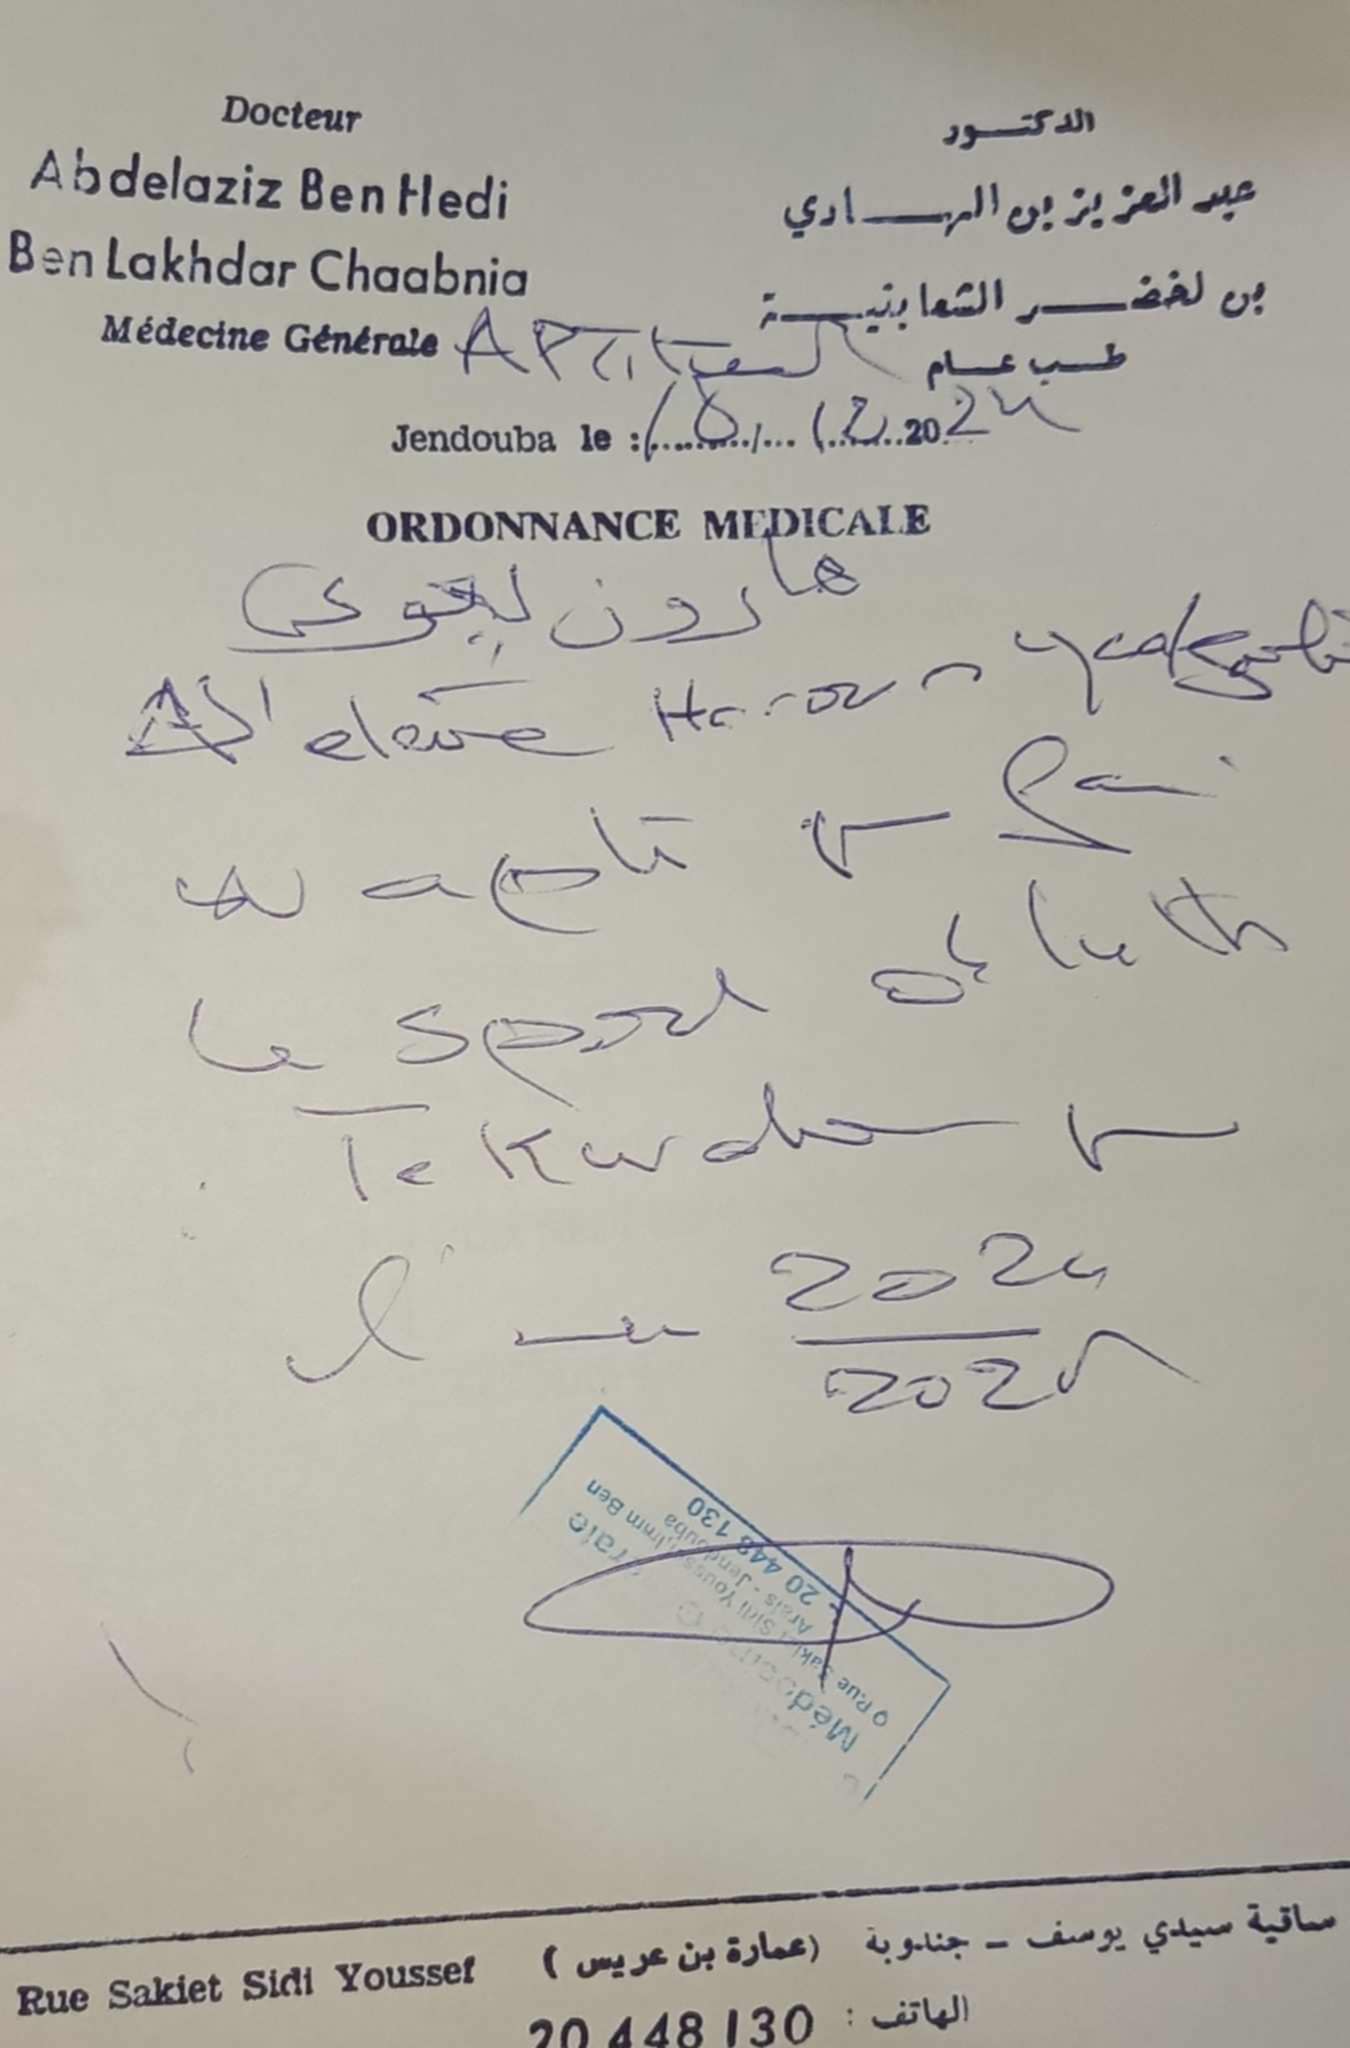 Docteur
Abdelaziz Ben Hedi
Ben Lakhdar Chaabnia
Médecine Générale
الدكتور
عبد العزيز بن الهادي
بن لخضر الشعابنية
طب عام
Jendouba le : 18/12 2024
ORDONNANCE MEDICALE
هارون
l'eleve Haroun
apti
le sport de lutte
Tekwdon
l' 2024
2025
Médecine
Rue Sakiet Sidi Youssef Imm Ben
Arais - Jendouba
20 448 130
ساقية سيدي يوسف - جندوبة (عمارة بن عريس)
Rue Sakiet Sidi Youssef
الهاتف : 20 448 130